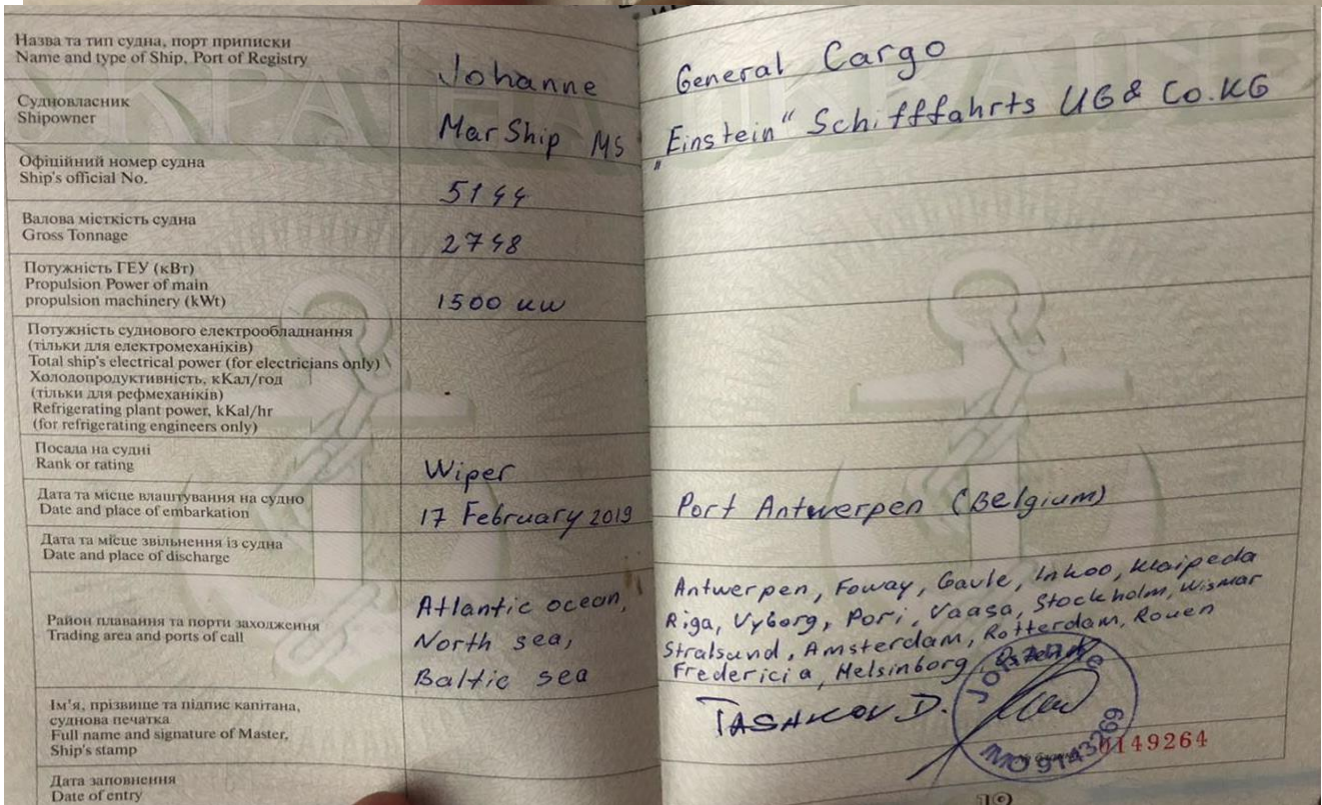 Назва та тип судна, порт приписки
Name and type of Ship, Port of Registry
Johanne
General Cargo
Судновласник
Shipowner
MarShip MS
„Einstein“ Schifffahrts UG & Co.KG
Офіційний номер судна
Ship's official No.
5144
Валова місткість судна
Gross Tonnage
2748
Потужність ГЕУ (кВт)
Propulsion Power of main
propulsion machinery (kWt)
1500 kw
Потужність суднового електрообладнання
(тільки для електромеханіків)
Total ship's electrical power (for electricians only)
Холодопродуктивність, кКал/год
(тільки для рефмеханіків)
Refrigerating plant power, kKal/hr
(for refrigerating engineers only)
Посада на судні
Rank or rating
Wiper
Дата та місце влаштування на судно
Date and place of embarkation
17 February 2019
Port Antwerpen (Belgium)
Дата та місце звільнення із судна
Date and place of discharge
Район плавання та порти заходження
Trading area and ports of call
Atlantic ocean,
North sea,
Baltic sea
Antwerpen, Foway, Gavle, Inkoo, Klaipeda
Riga, Vyborg, Pori, Vaasa, Stockholm, Wismar
Stralsund, Amsterdam, Rotterdam, Rouen
Fredericia, Helsinborg,
Ім'я, прізвище та підпис капітана,
суднова печатка
Full name and signature of Master,
Ship's stamp
TASHKOV D.
Johanne
IMO 9143269
0149264
Дата заповнення
Date of entry
19